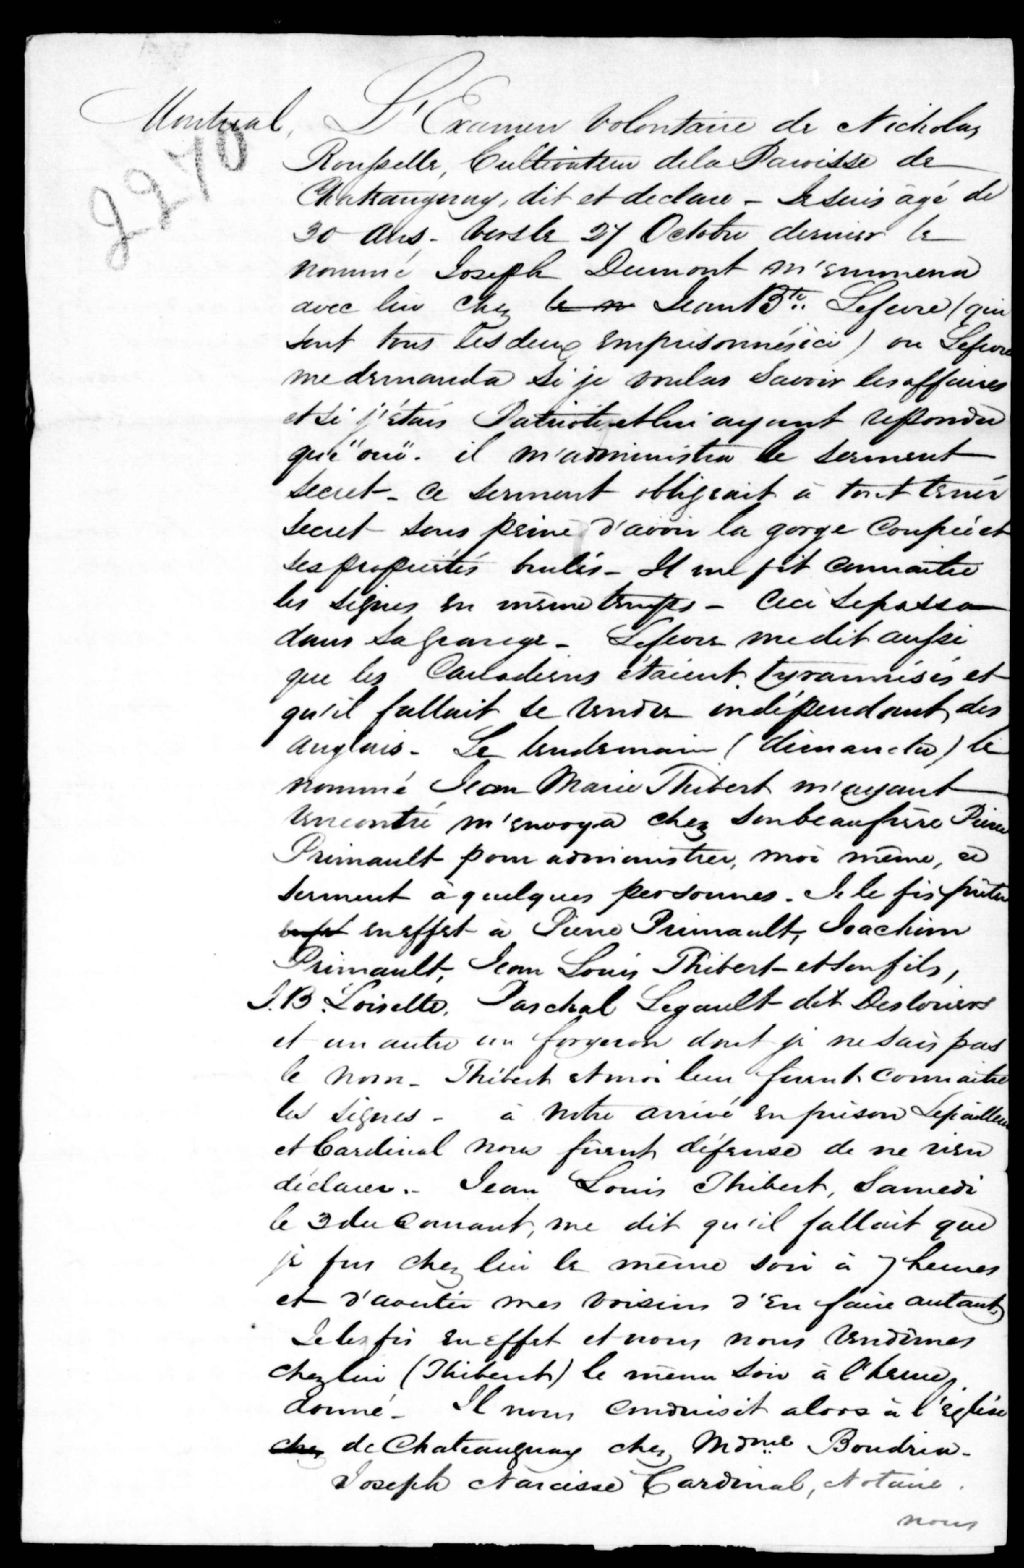 Montreal, L'Examen Volontaire de Nicholas
2270
Rousselle, Cultivateur de la Paroisse de
Chateauguay, dit et declare - Je suis âgé de
30 ans. Vers le 27 Octobre dernier le
nommé Joseph Dumont m'emmena
avec lui chez le n Jean Bte. Lefevre (qui
sont tous les deux emprisonnés ici) ou Lefevre
me demanda si je voulas savoir les affaires
et si j'étais Patriote et lui ayant repondu
que "oui". il m'administra le serment
secret - Ce serment obligeait à tout tenir
secret sous peine d'avoir la gorge coupée et
ses propriétés brulés - Il me fit connaitre
les signes en même temps - Ceci se passa
dans sa grange - Lefevre me dit aussi
que les Canadiens étaient tyrannisés et
qu'il fallait se rendre indépendant des
Anglais - Le lendemain (dimanche) le
nommé Jean Marie Thibert m'ayant
rencontré m'envoya chez son beaufrère Pierre
Primault pour administrer, moi même, ce
serment à quelques personnes. Je le fis prêter
en effet à Pierre Primault, Joachim
Primault, Jean Louis Thibert et son fils,
J.B. Loiselle, Paschal Legault dit Deslorier
et un autre un forgeron dont je ne sais pas
le nom - Thibert et moi leur firent connaitre
les signes - à notre arrivé en prison Lepailleur
et Cardinal nous firent défense de ne rien
déclarer - Jean Louis Thibert, Samedi
le 3 du Courant, me dit qu'il fallait que
je fus chez lui le même soir à 7 heures
et d'avertir mes voisins d'en faire autant,
Je les fis en effet et nous nous rendimes
chez lui (Thibert) le même soir à l'heure
donné - Il nous conduisit alors à l'église
chez de Chateauguay chez Mdme Boudria -
Joseph Narcisse Cardinal, Notaire.
nous